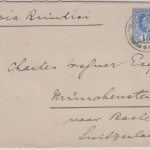 via Brindisi
Charles Wagner Esq
Münchenstein
near Basle
Switzerland